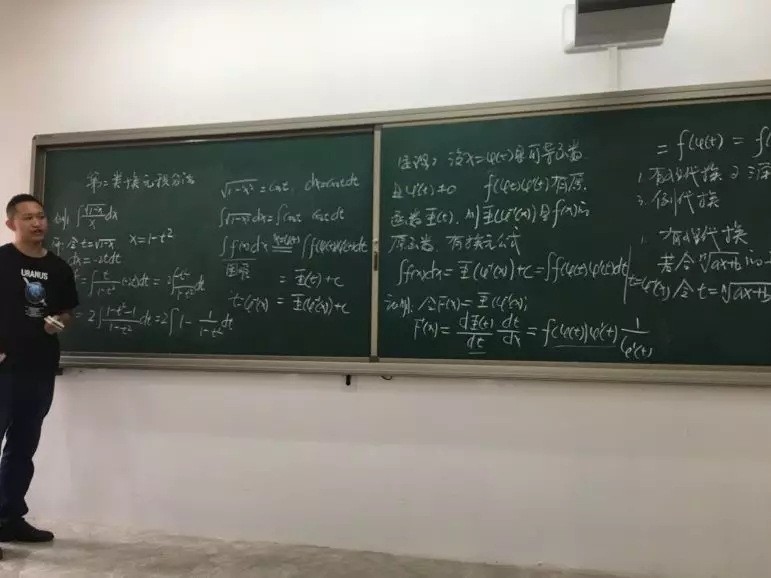 第二类换元积分法
例: ∫ √(1-x)/x dx
解: 令 t=√(1-x)  x=1-t²
dx=-2tdt
= ∫ t/(1-t²) (-2t)dt = 2∫ -t²/(1-t²) dt
= 2∫ (1-t²-1)/(1-t²) dt = 2∫ 1 - 1/(1-t²) dt
√(1-x²) = cost, dx=costdt
∫√(1-x²) dx = ∫cost costdt
∫f(x)dx = x=φ(t) ∫f(φ(t))φ'(t)dt
困难
= Φ(t)+c
t=φ⁻¹(x) = Φ(φ⁻¹(x))+c
定理2 设x=φ(t)是可导函数
且φ'(t)≠0 f(φ(t))φ'(t)有原
函数Φ(t), 则Φ(φ⁻¹(x))是f(x)的
原函数, 有换元公式
∫f(x)dx = Φ(φ⁻¹(x))+C = ∫f(φ(t))φ'(t)dt | t=φ⁻¹(x)
证明: 令F(x)=Φ(φ⁻¹(x))
F'(x) = dΦ(t)/dt dt/dx = f(φ(t))φ'(t) 1/φ'(t)
= f(φ(t) = f(
1. 有理代换 2 三
3. 倒代换
1. 有理代换
若含 ⁿ√(ax+b)
令 t=ⁿ√(ax+b)
URANUS